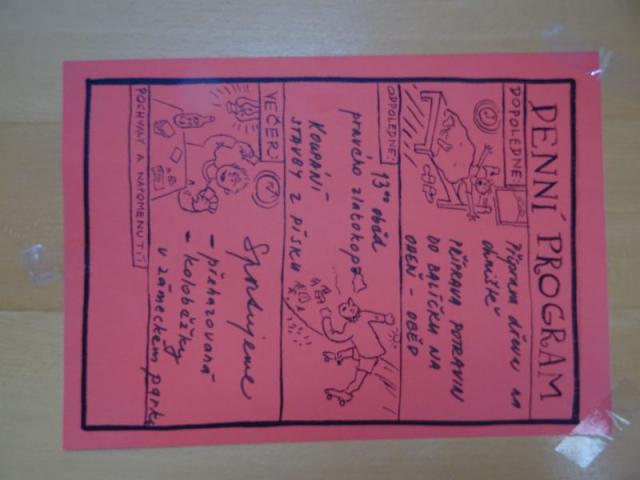 DENNÍ PROGRAM
DOPOLEDNE:
Příprava dřeva na
ohniště
PŘÍPRAVA POTRAVIN
DO BALÍČKŮ NA
OHEŇ - OBĚD
ODPOLEDNE:
13⁰⁰ oběd
pravého zlatokopa
KOUPÁNÍ
STAVBY Z PÍSKU
VEČER:
Sportujeme
- přehazovaná
- koloběžky
v zámeckém parku
POCHVALY A NAPOMENUTÍ: